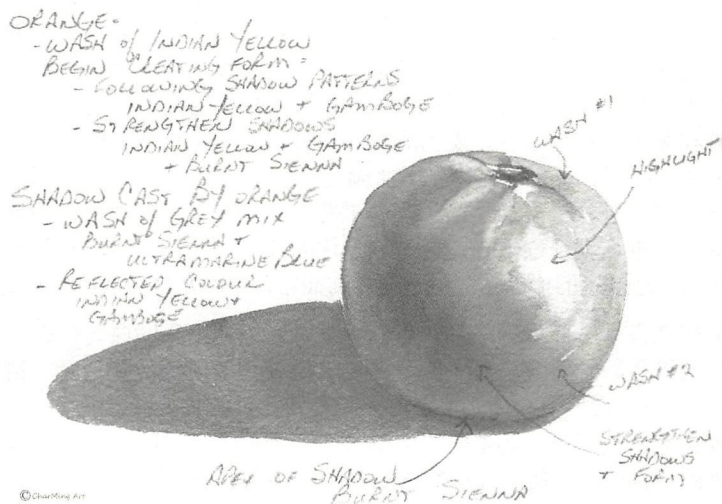 ORANGE-
- WASH of INDIAN YELLOW
BEGIN CREATING FORM:
- FOLLOWING SHADOW PATTERNS
INDIAN YELLOW + GAMBOGE
- STRENGTHEN SHADOWS
INDIAN YELLOW + GAMBOGE
+ BURNT SIENNA
SHADOW CAST BY ORANGE
- WASH of GREY MIX
BURNT SIENNA +
ULTRAMARINE BLUE
- REFLECTED COLOUR
INDIAN YELLOW +
GAMBOGE
WASH #1
HIGHLIGHT
WASH #2
STRENGTHEN
SHADOWS
+ FORM
APEX OF SHADOW
BURNT SIENNA
© CharMing Art